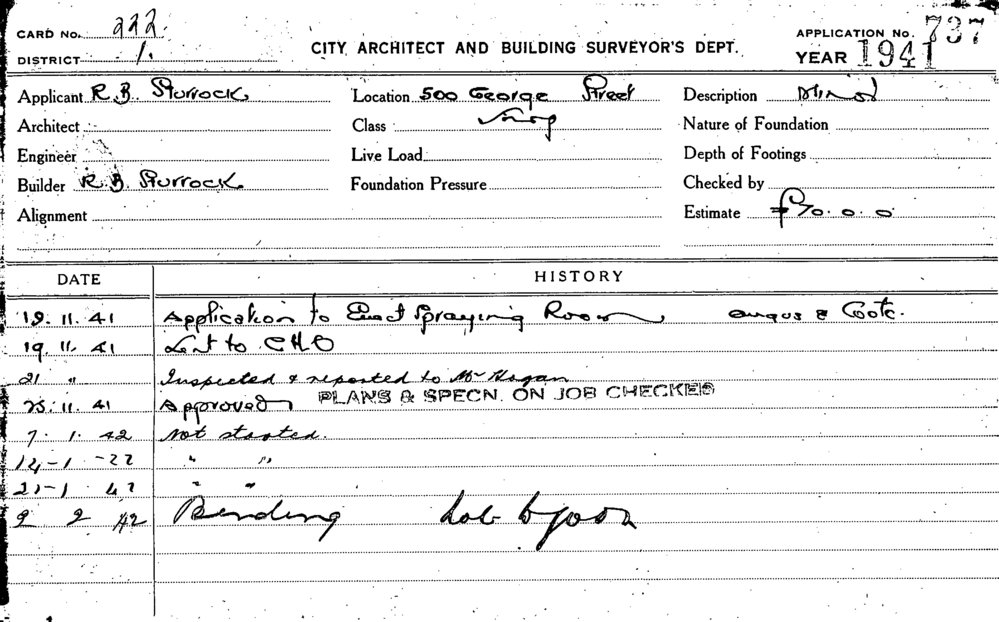 CARD No. 222.
DISTRICT 1.
CITY ARCHITECT AND BUILDING SURVEYOR'S DEPT.
APPLICATION No. 737
YEAR 1941
Applicant R.B. Sturrock Location 500 George Street Description Minor
Architect Class Nature of Foundation
Engineer Live Load Depth of Footings
Builder R.B. Sturrock Foundation Pressure Checked by
Alignment Estimate £70.0.0
DATE HISTORY
19.11.41 Application to Erect Spraying Room Angus & Coote.
19.11.41 Sent to CHO
21 " Inspected & reported to Mr Hogan
25.11.41 Approved PLANS & SPECN. ON JOB CHECKED
7.1.42 Not started.
14-1- " "
21-1 42 " "
2 2 42 Pending